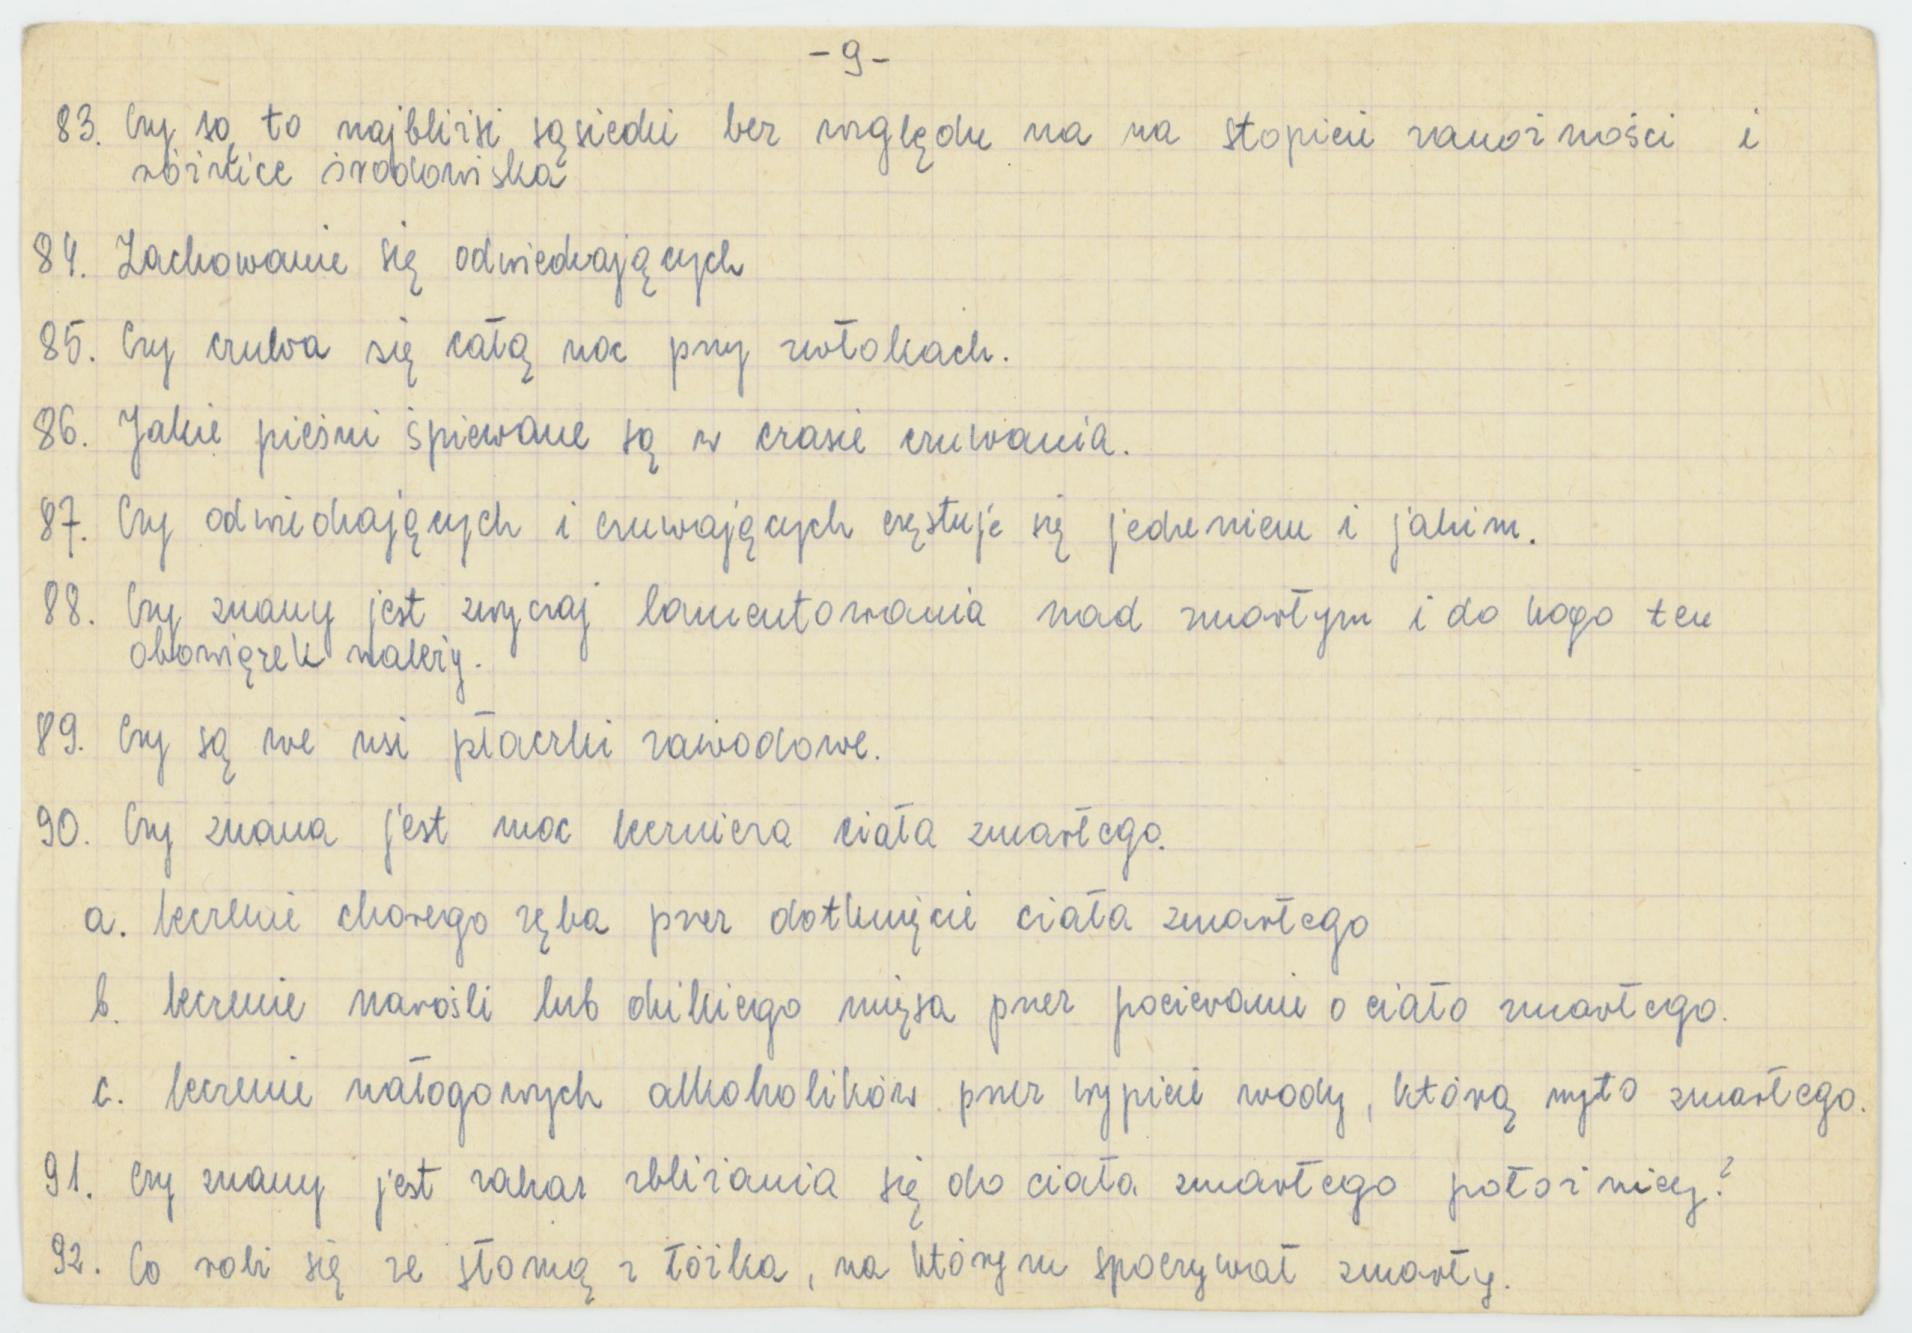 - 9 -
83. Czy są to najbliżsi sąsiedzi bez względu na na stopień zamożności i
różnice środowiska
84. Zachowanie się odwiedzających
85. Czy czuwa się całą noc przy zwłokach.
86. Jakie pieśni śpiewane są w czasie czuwania.
87. Czy odwiedzających i czuwających częstuje się jedzeniem i jakim.
88. Czy znany jest zwyczaj lamentowania nad zmarłym i do kogo ten
obowiązek należy.
89. Czy są we wsi płaczki zawodowe.
90. Czy znana jest moc lecznicza ciała zmarłego.
a. leczenie chorego zęba przez dotknięcie ciała zmarłego
b. leczenie narośli lub dzikiego mięsa przez pocieranie o ciało zmarłego.
c. leczenie nałogowych alkoholików przez wypicie wody, którą myto zmarłego.
91. Czy znany jest zakaz zbliżania się do ciała zmarłego położnicy?
92. Co robi się ze słomą z łóżka, na którym spoczywał zmarły.